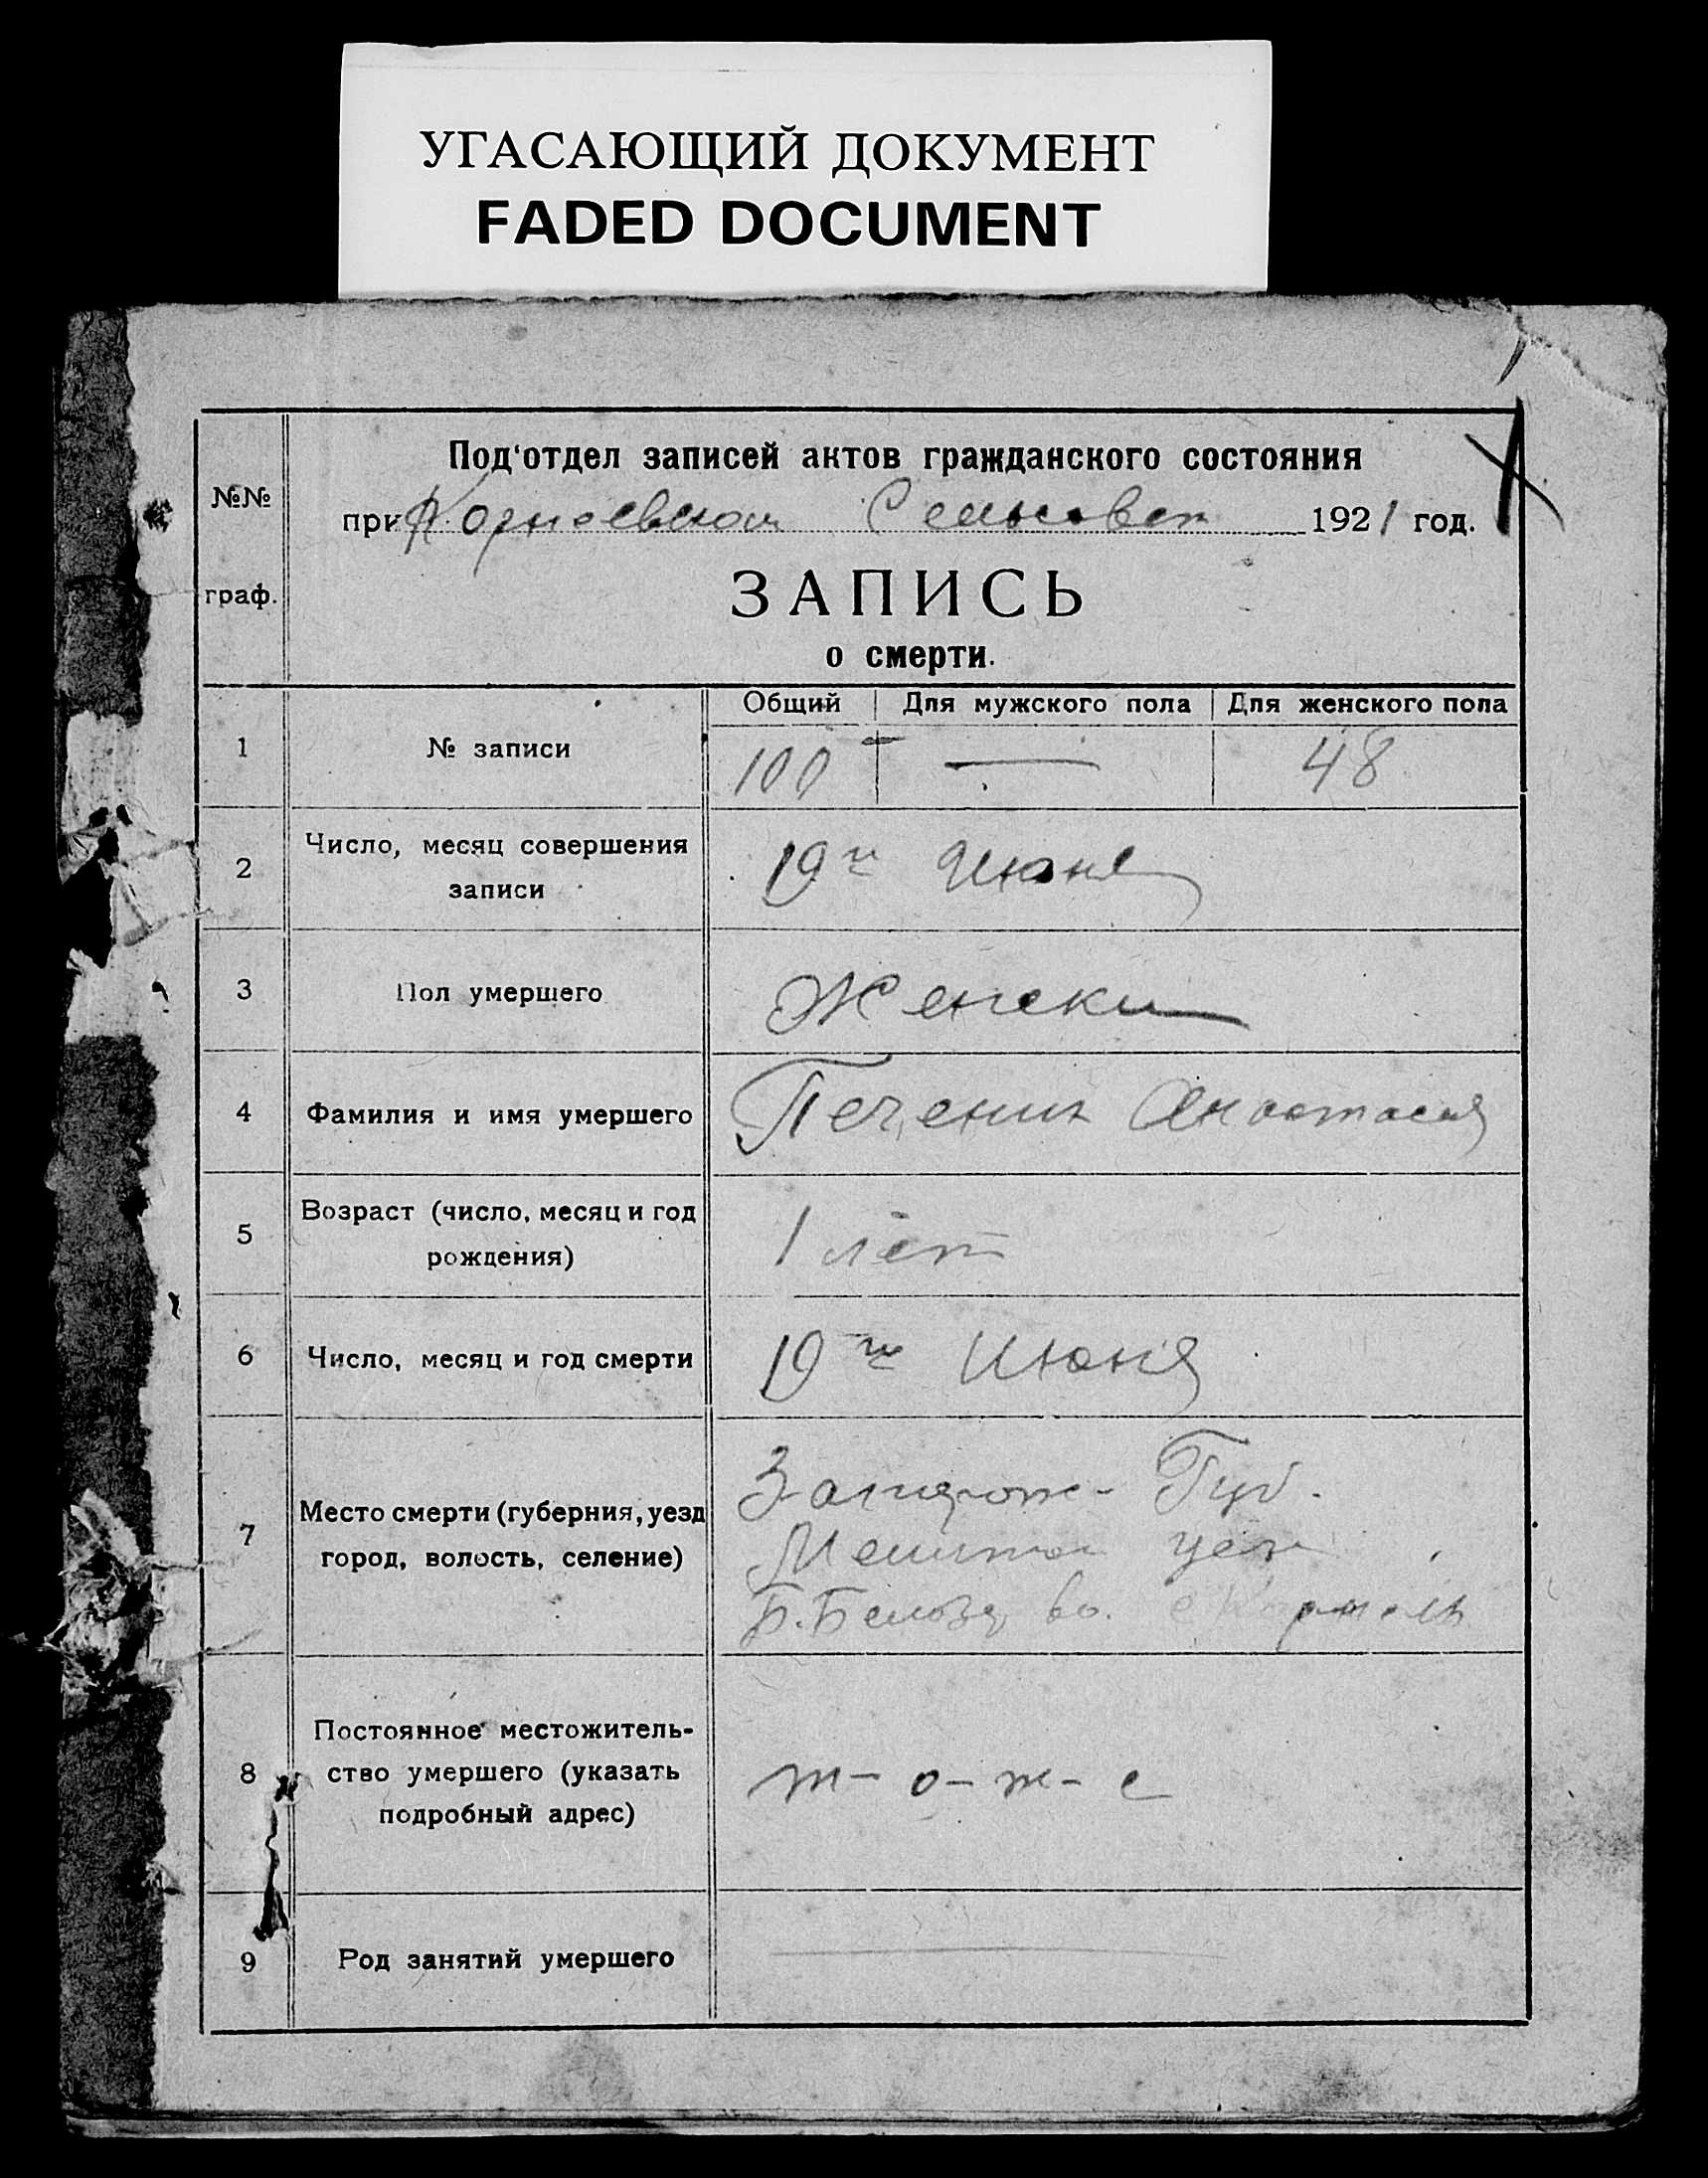 УГАСАЮЩИЙ ДОКУМЕНТ
FADED DOCUMENT
№№
граф.
Под'отдел записей актов гражданского состояния
при 1921 год.
ЗАПИСЬ
о смерти.
Общий Для мужского пола Для женского пола
1 № записи 100 — 48
2 Число, месяц совершения
записи
19го Июня
3 Пол умершего Женски
4 Фамилия и имя умершего Анастасия
5 Возраст (число, месяц и год
рождения)
1 лет
6 Число, месяц и год смерти 19го Июня
7 Место смерти (губерния, уезд
город, волость, селение)
Губ.
Б.
8 Постоянное местожитель-
ство умершего (указать
подробный адрес)
т-о-ж-е
9 Род занятий умершего